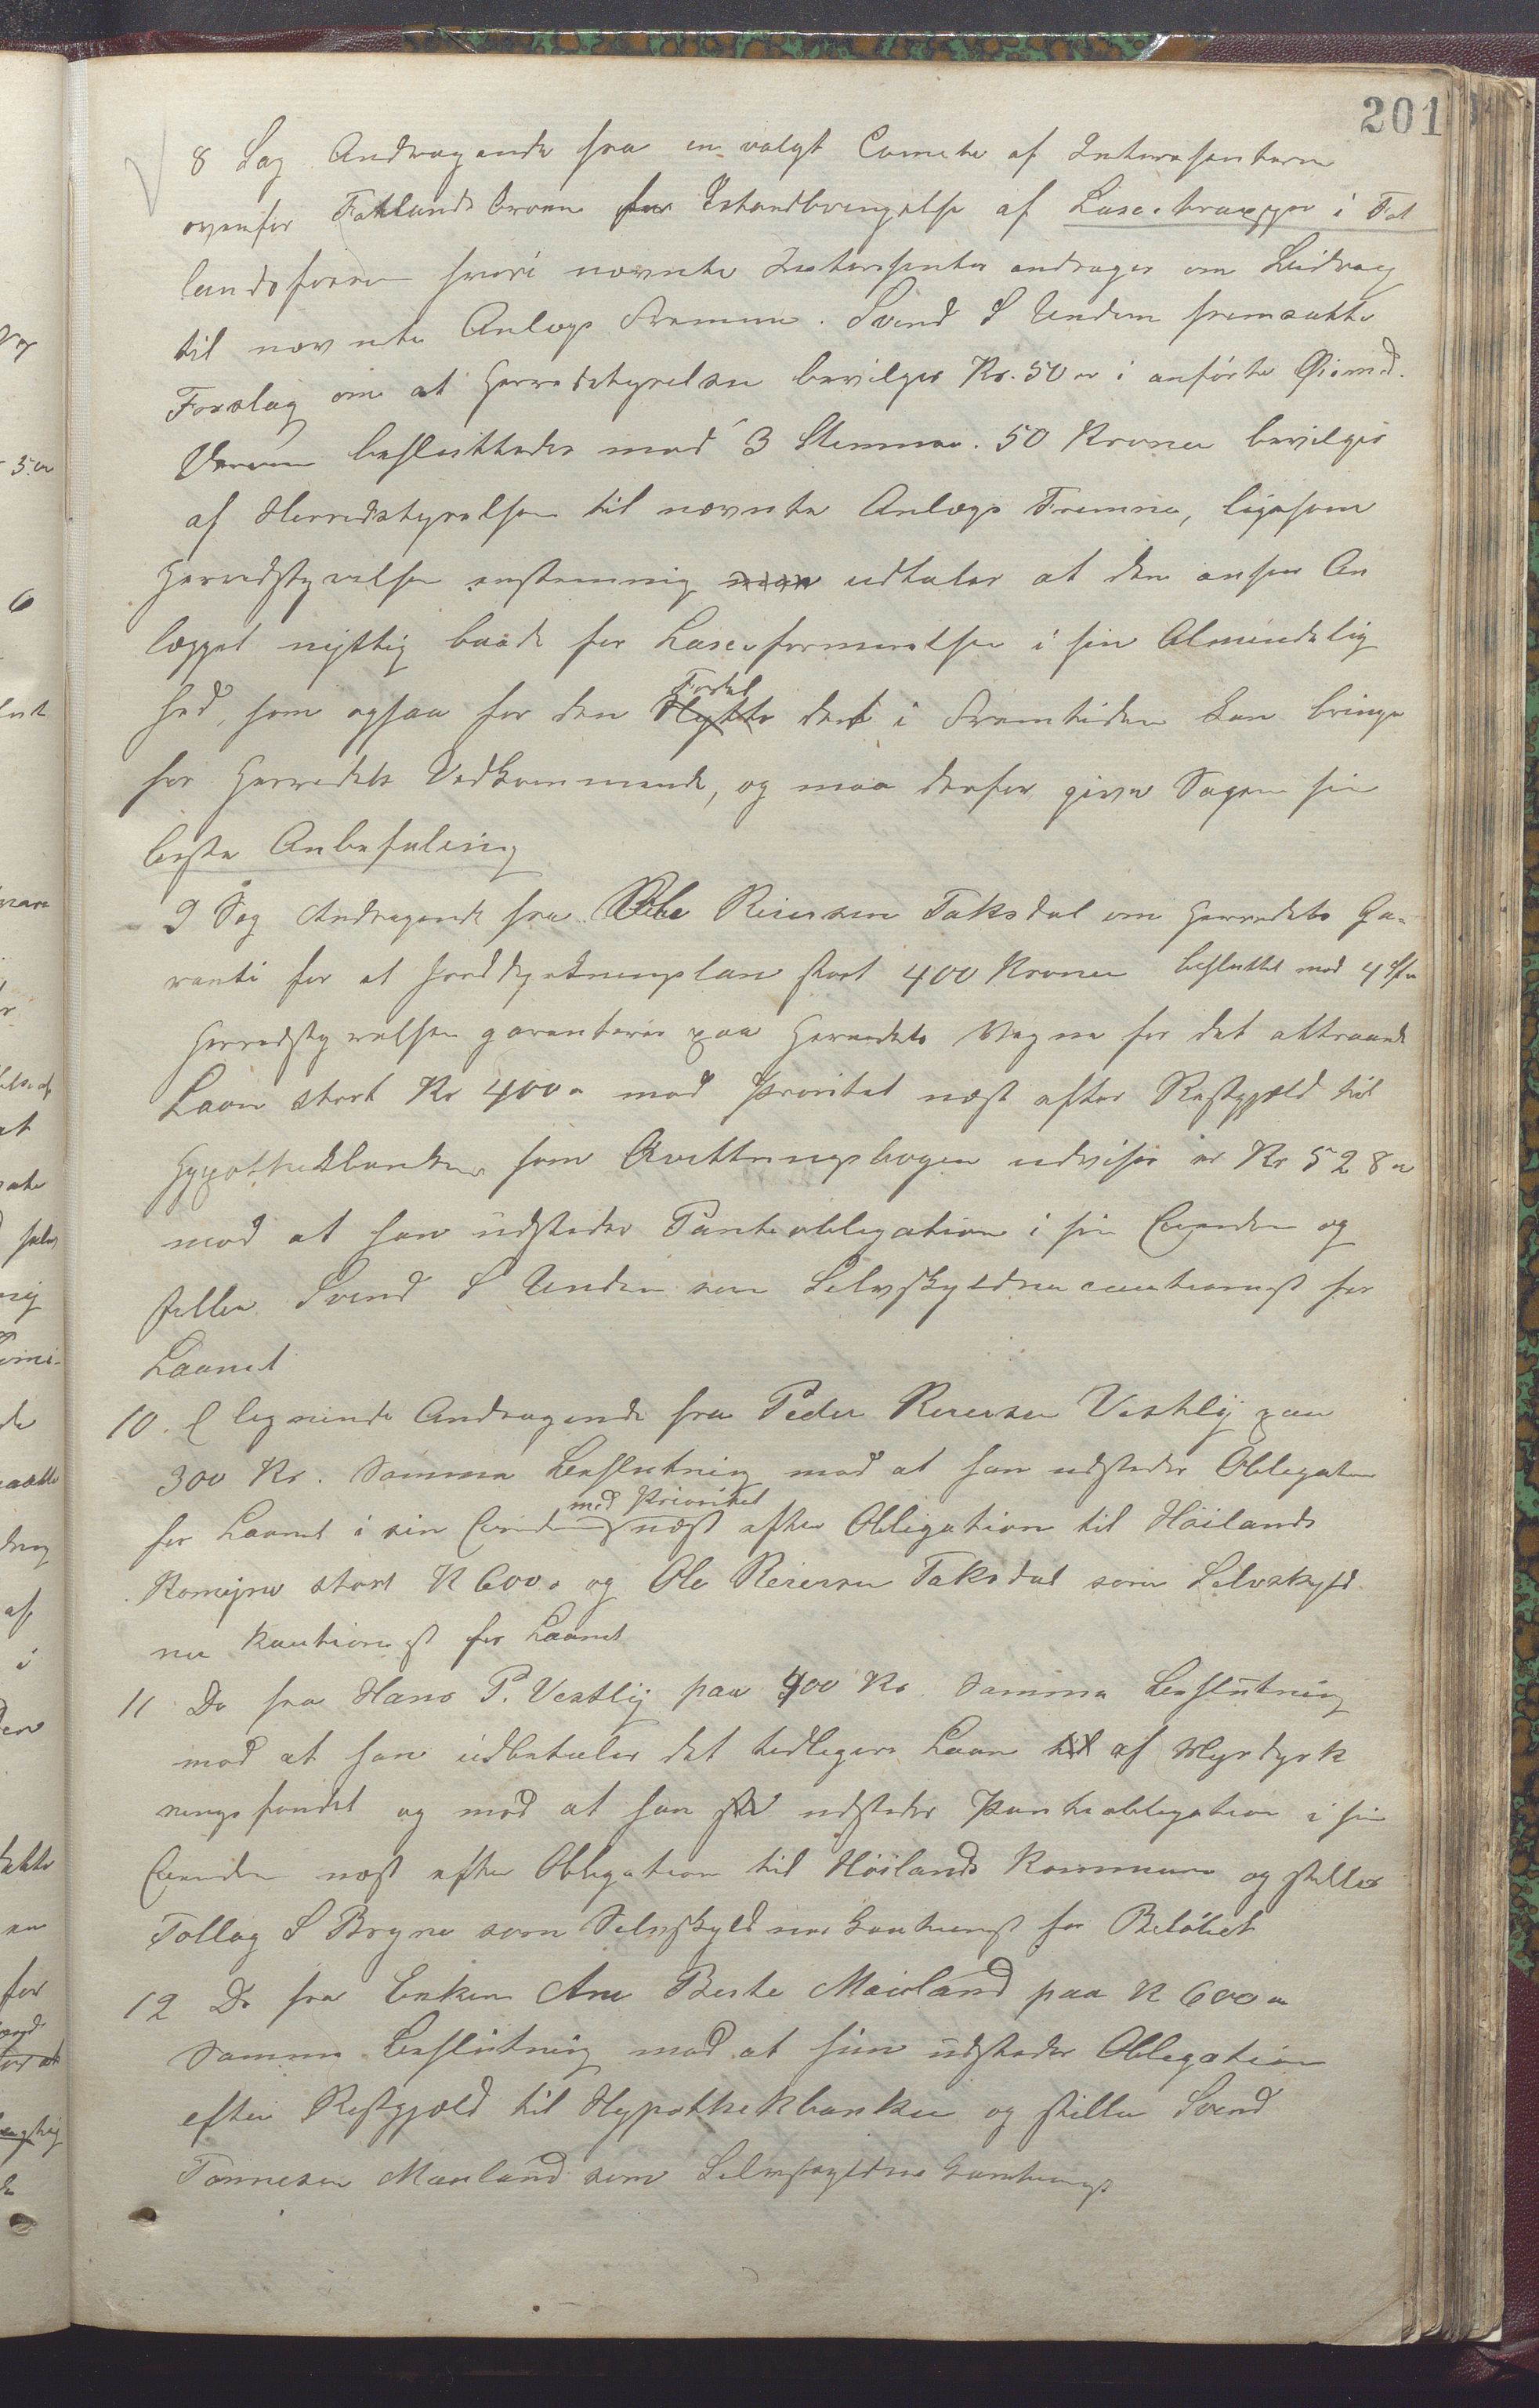 201
8 Sag Andragende fra en valgt Comite af Interesenterne
ovenfor Fotlandsbroen for Istandbringelse af Laxetrapper i Fot
landsfossen hvori nævnte Interesenter andrager om Bidrag
til nævnte Anlægs Fremme. Svend S Undem fremsatte
Forslag om at Herredstyrelsen bevilger Kr. 50 i anførte Øiemed.
besluttedes mod 3 Stemmer. 50 Kroner bevilges
af Herredstyrelsen til nævnte Anlægs Fremme, ligesom
Herredstyrelsen enstemmig udtaler at den anser An
lægget nyttig baade for Laxeformerelsen i sin Almindelig
hed, som ogsaa for den Nytte Fordel det i Fremtiden kan bringe
for Herredets Vedkommende, og maa derfor give Sagen sin
beste Anbefaling
9 Sag Andragende fra Ole Reiersen Taksdal om Herredets Ga-
ranti for et Jorddyrkningslaan stort 400 Kroner besluttet mod 4 St
Herredstyrelsen garanterer paa Herredets Vegne for det attraaede
Laan stort Kr 400 mod Prioritet næst efter Restgjæld til
Hypothekbanken som Qvitteringsbogen udviser er Kr 528
mod at han udsteder Panteobligation i sin Eiendom og
stiller Svend S Undem som Selvskyldnercautionist for
Laanet
10. Lignende Andragende fra Peder Reiersen Vestly paa
300 Kr. Samme Beslutning mod at han udsteder Obligation
for Laanet i sin Eiendom med Prioritet næst efter Obligation til Höilands
Komune stort K 600 og Ole Reiersen Taksdal som Selvskyld
ner Kautionist for Laanet
11 Do fra Hans P. Vestly paa 400 Kr Samme Beslutning
mod at han udbetaler det tidligere Laan til af Myrdyrk
ningsfondet og mod at han udsteder Panteobligation i sin
Eiendom næst efter Obligation til Höilands Kommune og stiller
Tollag S Bryne som Selvskyldner Kautionist for Beløbet
12 Do fra Enken Ane Berte Mauland paa K 600
Samme Beslutning mod at hun udsteder Obligation
efter Restgjæld til Hypothekbanken og stiller Svend
Tønnesen Mauland som Selvskyldner Kautionist